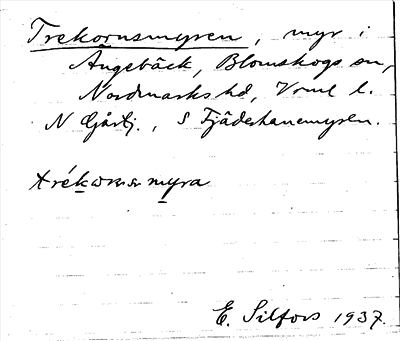 Trekornsmyren, myr i
Ängebäck, Blomskogs sn,
Nordmarks hd, Vrml l.
N Gårdsj., S Fjäderhanemyren.
E. Silfors 1937.